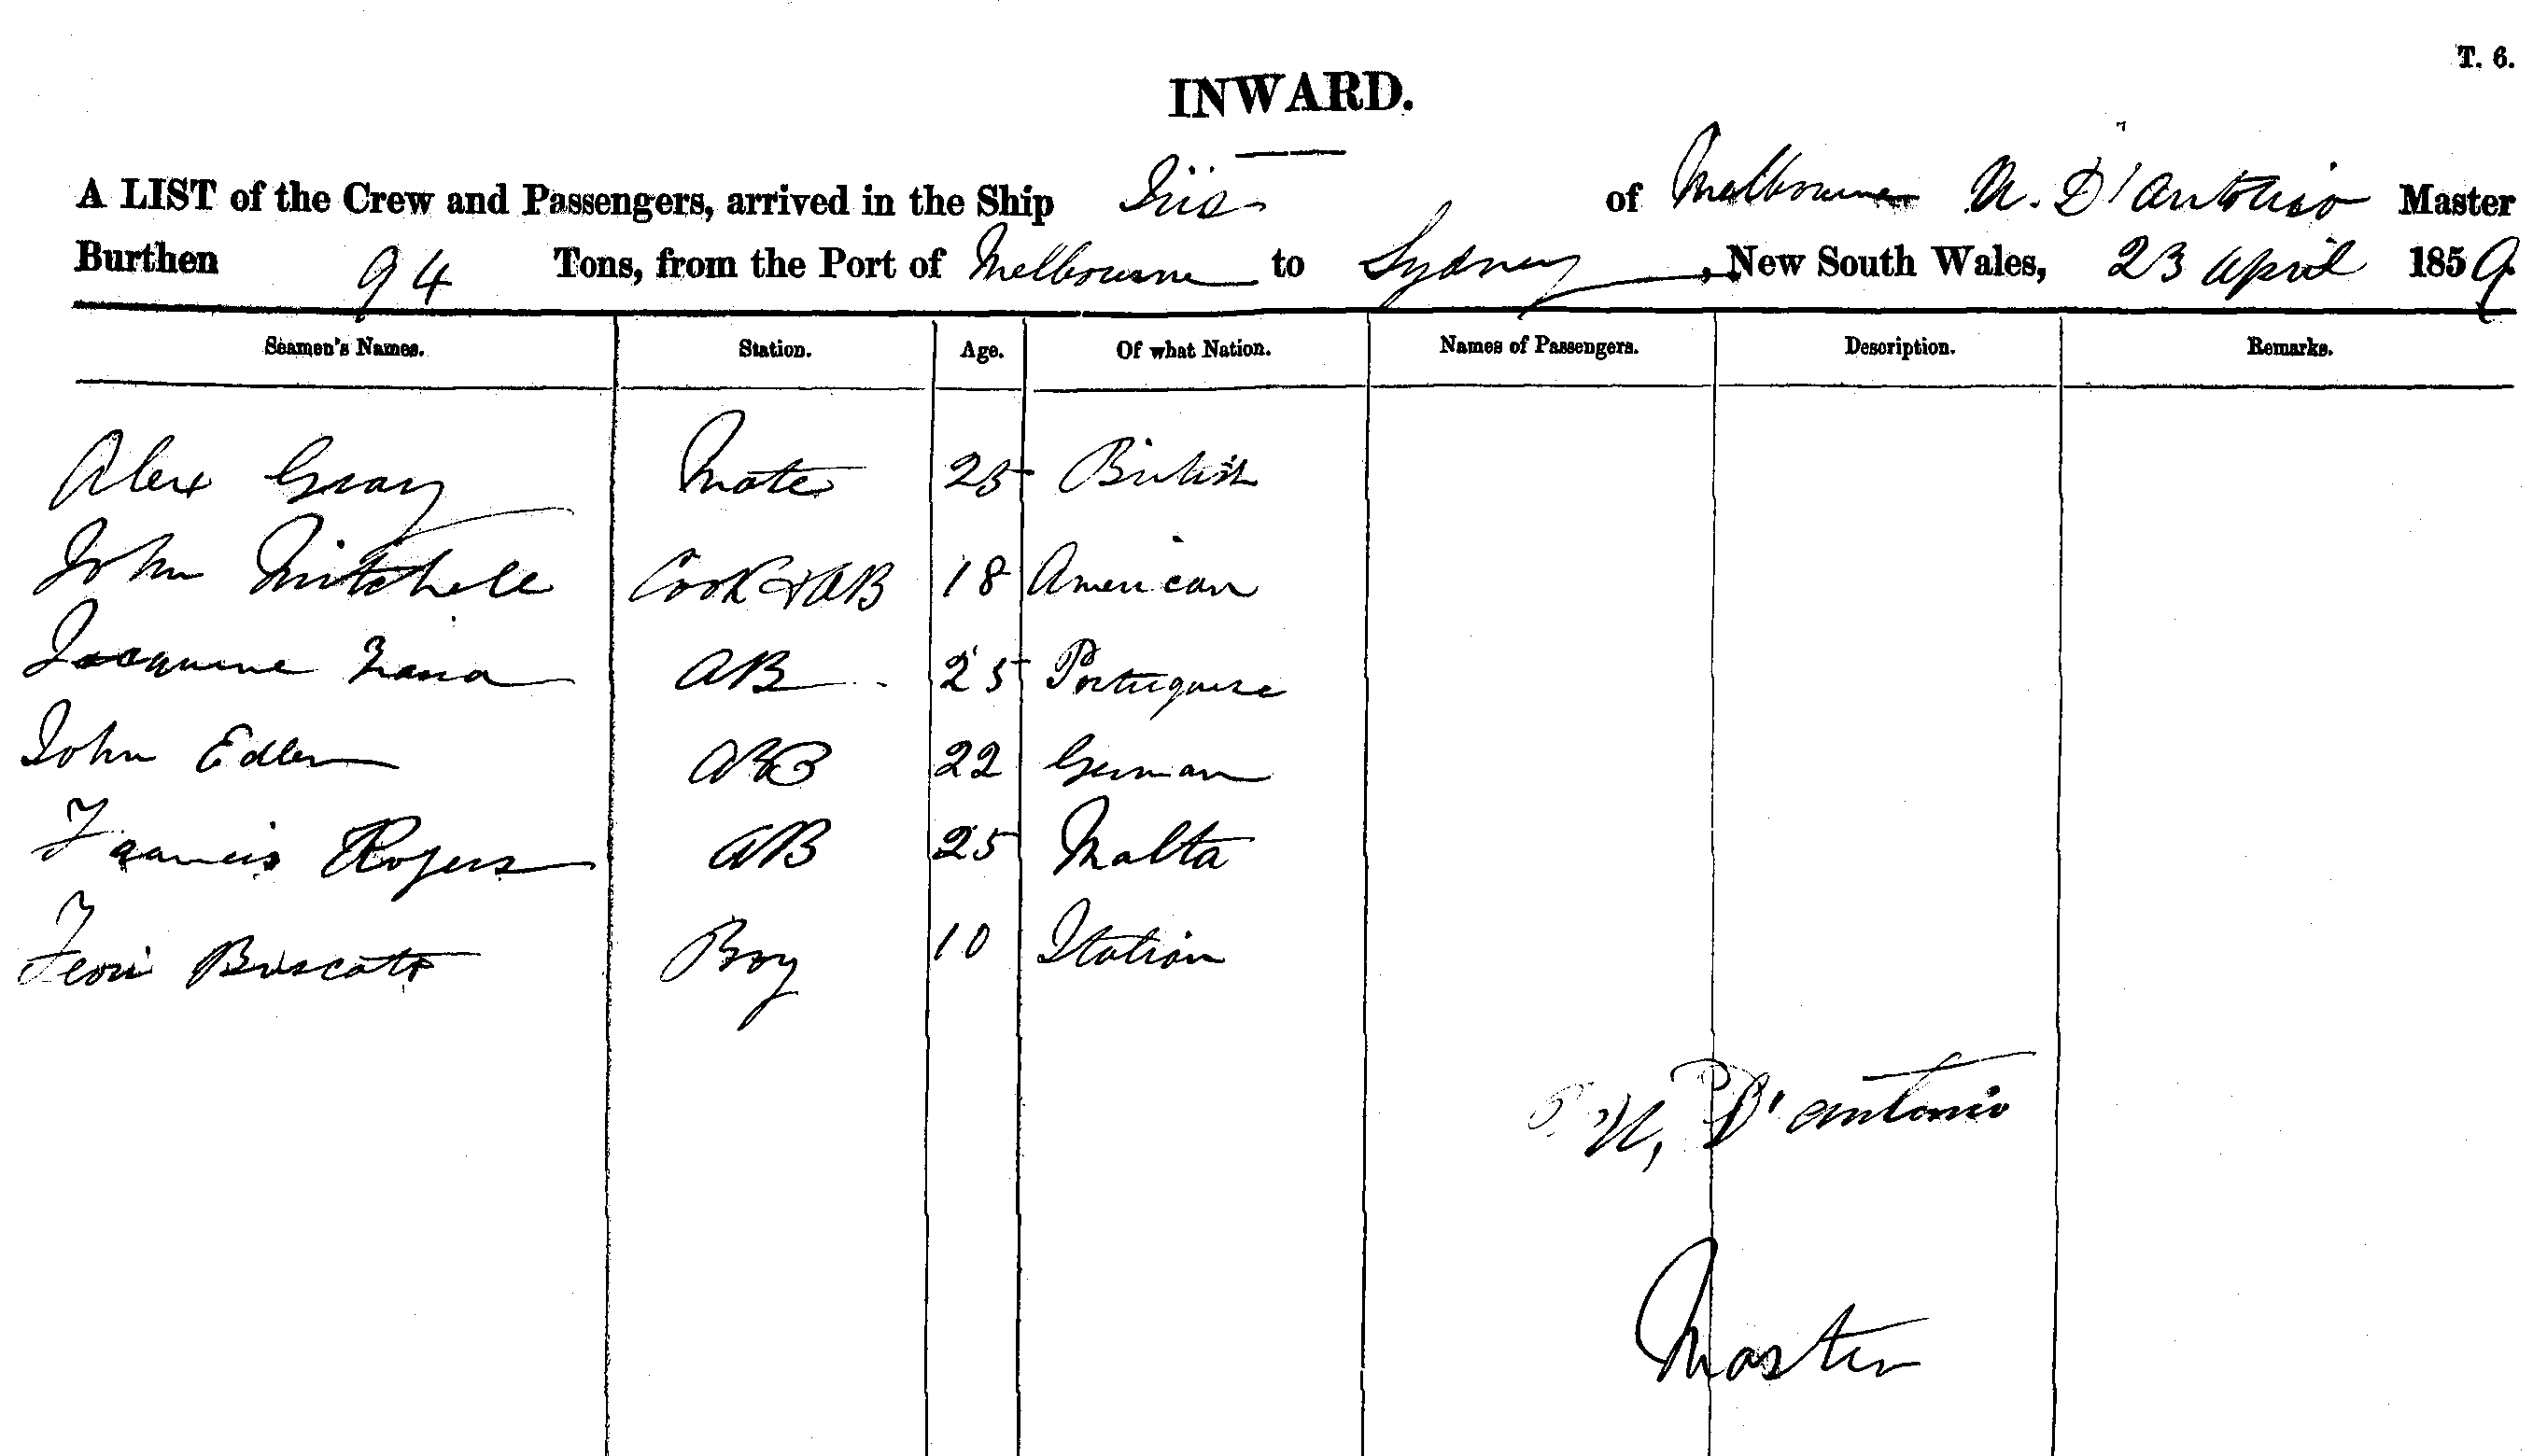 T. 6.
INWARD.
A LIST of the Crew and Passengers, arrived in the Ship Iris of Melbourne N. D'Antonio Master
Burthen 94 Tons, from the Port of Melbourne to Sydney, New South Wales, 23 April 1859
Seamen's Names. Station. Age. Of what Nation. Names of Passengers. Description. Remarks.
Alex Gray Mate 25 British
John Mitchell Cook & AB 18 American
AB 25 Portuguese
John Edler AB 22 German
Francis Rogers AB 25 Malta
Boy 10 Italian
N, D'antonio
Master